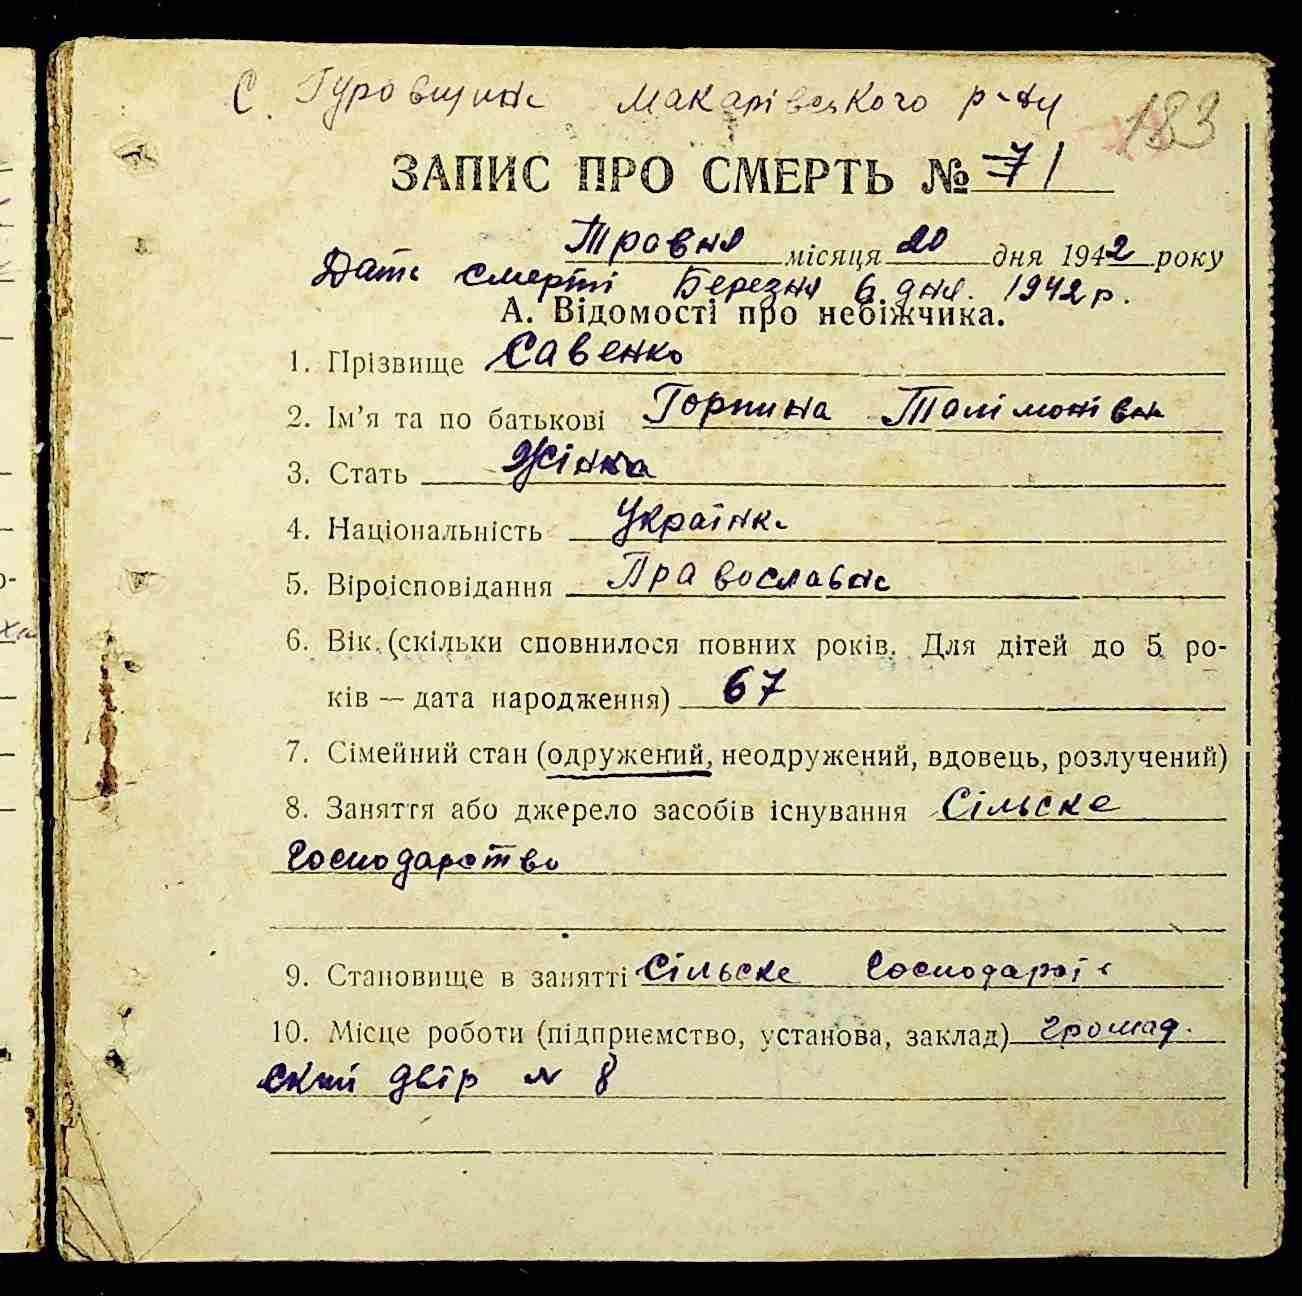 с. Гуровщина Макарівського р-ну
183
ЗАПИС ПРО СМЕРТЬ № 71
Травня місяця 20 дня 1942 року
Дата смерті Березня 6 дня. 1942 р.
А. Відомості про небіжчика.
1. Прізвище Савенко
2. Ім'я та по батькові Горпина Талімонівна
3. Стать Жінка
4. Національність Українка
5. Віроісповідання Православна
6. Вік (скільки сповнилося повних років. Для дітей до 5 ро-
ків — дата народження) 67
7. Сімейний стан (одружений, неодружений, вдовець, розлучений)
8. Заняття або джерело засобів існування Сільске
Господарство
9. Становище в занятті Сільске
10. Місце роботи (підприємство, установа, заклад) громад.
ский двір № 8